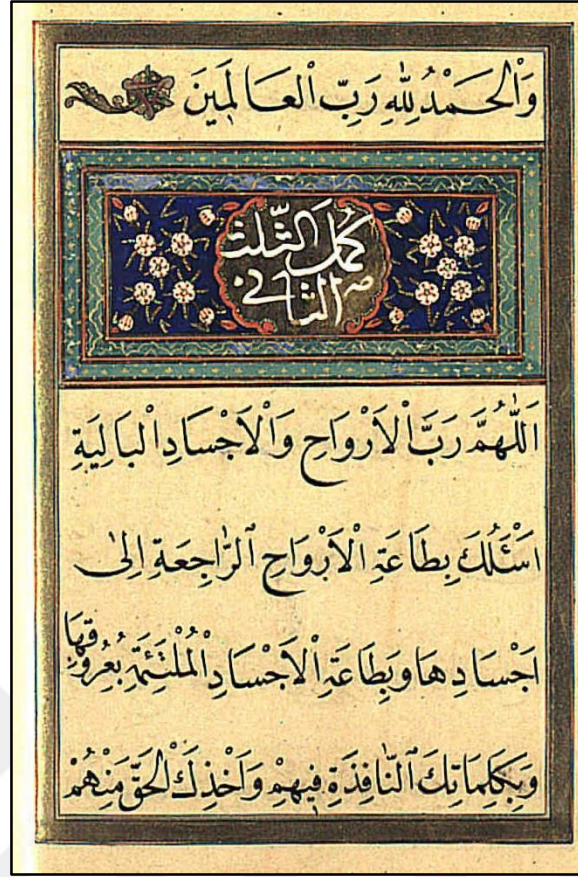 وَالْحَمْدُ لِلّٰهِ رَبِّ الْعَالَمِينَ
كمل الثّلث
الثانى
اَللّٰهُمَّ رَبَّ الْاَرْوَاحِ وَالْاَجْسَادِ الْبَالِيَةِ
اَسْئَلُكَ بِطَاعَةِ الْاَرْوَاحِ الرَّاجِعَةِ اِلٰى
اَجْسَادِهَا وَبِطَاعَةِ الْاَجْسَادِ الْمُلْتَئِمَةِ بِعُرُوقِهَا
وَبِكَلِمَاتِكَ النَّافِذَةِ فِيهِمْ وَاَخْذِكَ الْحَقَّ مِنْهُمْ